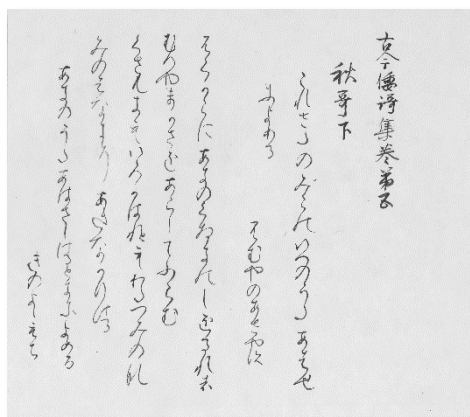 古今倭謌集巻第五
秋哥下
これさたのみこのいへのうたあはせ
によめる
ふむやのあさやす
ふくからにあきのくさきのしをるれは
むへやまかせをあらしといふらむ
くさもきもいろかはれともわたつみのな
みのはなにそあきなかりける
あきのうたあはせしけるときによめる
きのよしもち